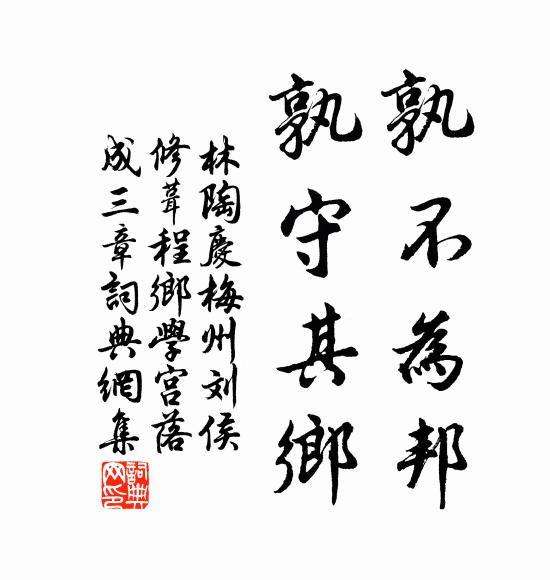 孰不為邦
孰守其鄉
林陶慶梅州刘侯
修葺程鄉學宫落
成三章詞典網集
詞典网印